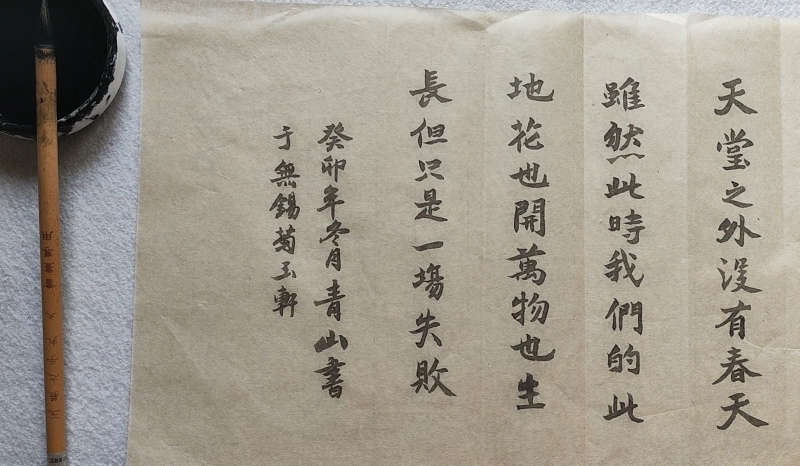 天堂之外没有春天
雖然此時我們的此
地花也開萬物也生
長但只是一場失敗
癸卯年冬月青山書
于無錫菊玉軒